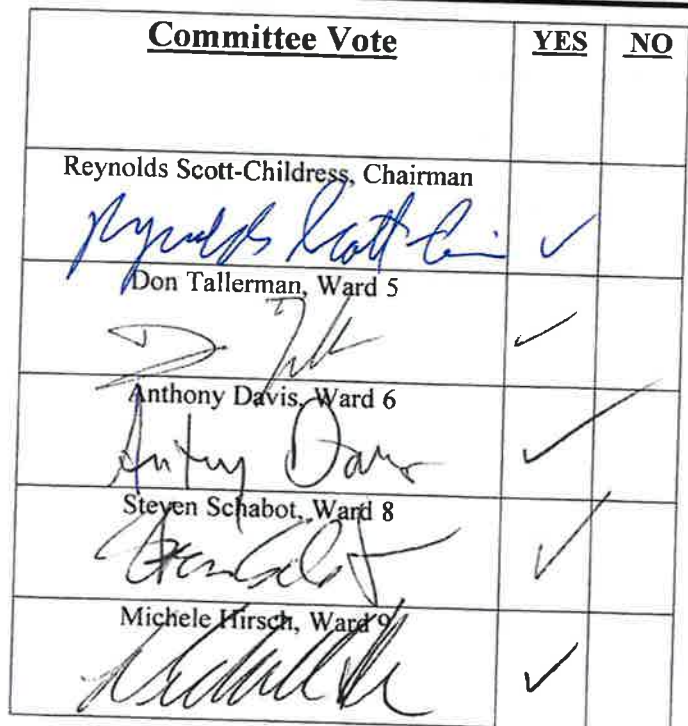 Committee Vote YES NO
Reynolds Scott-Childress, Chairman
Reynolds Scott-Chi ✓
Don Tallerman, Ward 5
✓
Anthony Davis, Ward 6
Antony Davis ✓
Steven Schabot, Ward 8
✓
Michele Hirsch, Ward 9
✓